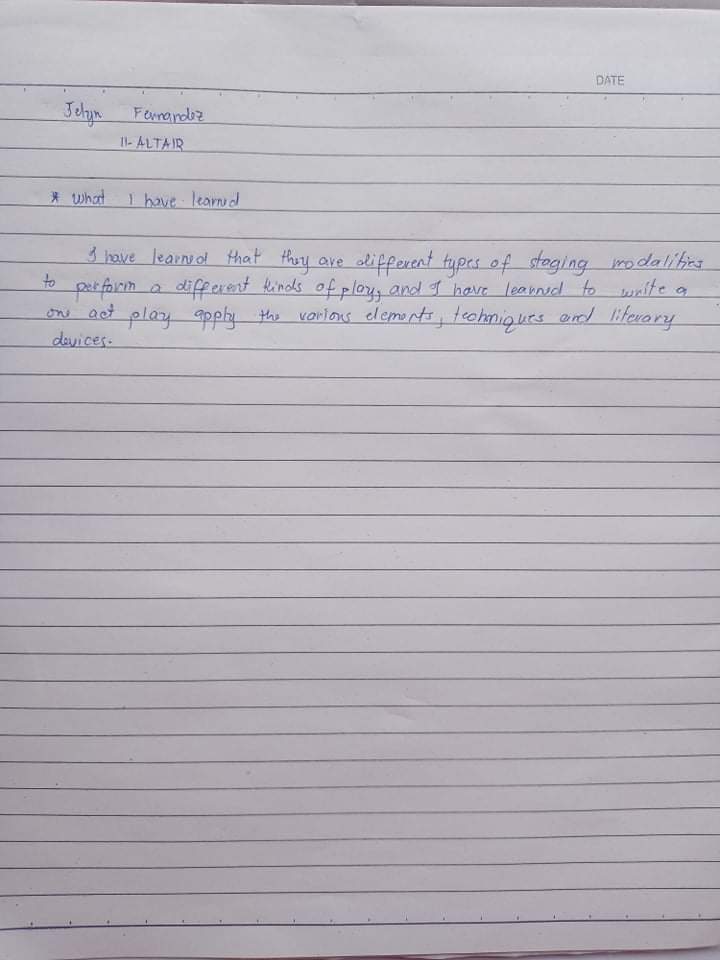 DATE
Jelyn Fernandez
11-ALTAIR
* What I have learned
I have learned that they are different types of staging modalities
to perform a different kinds of play, and I have learned to write a
one act play apply the various elements, techniques and literary
devices.